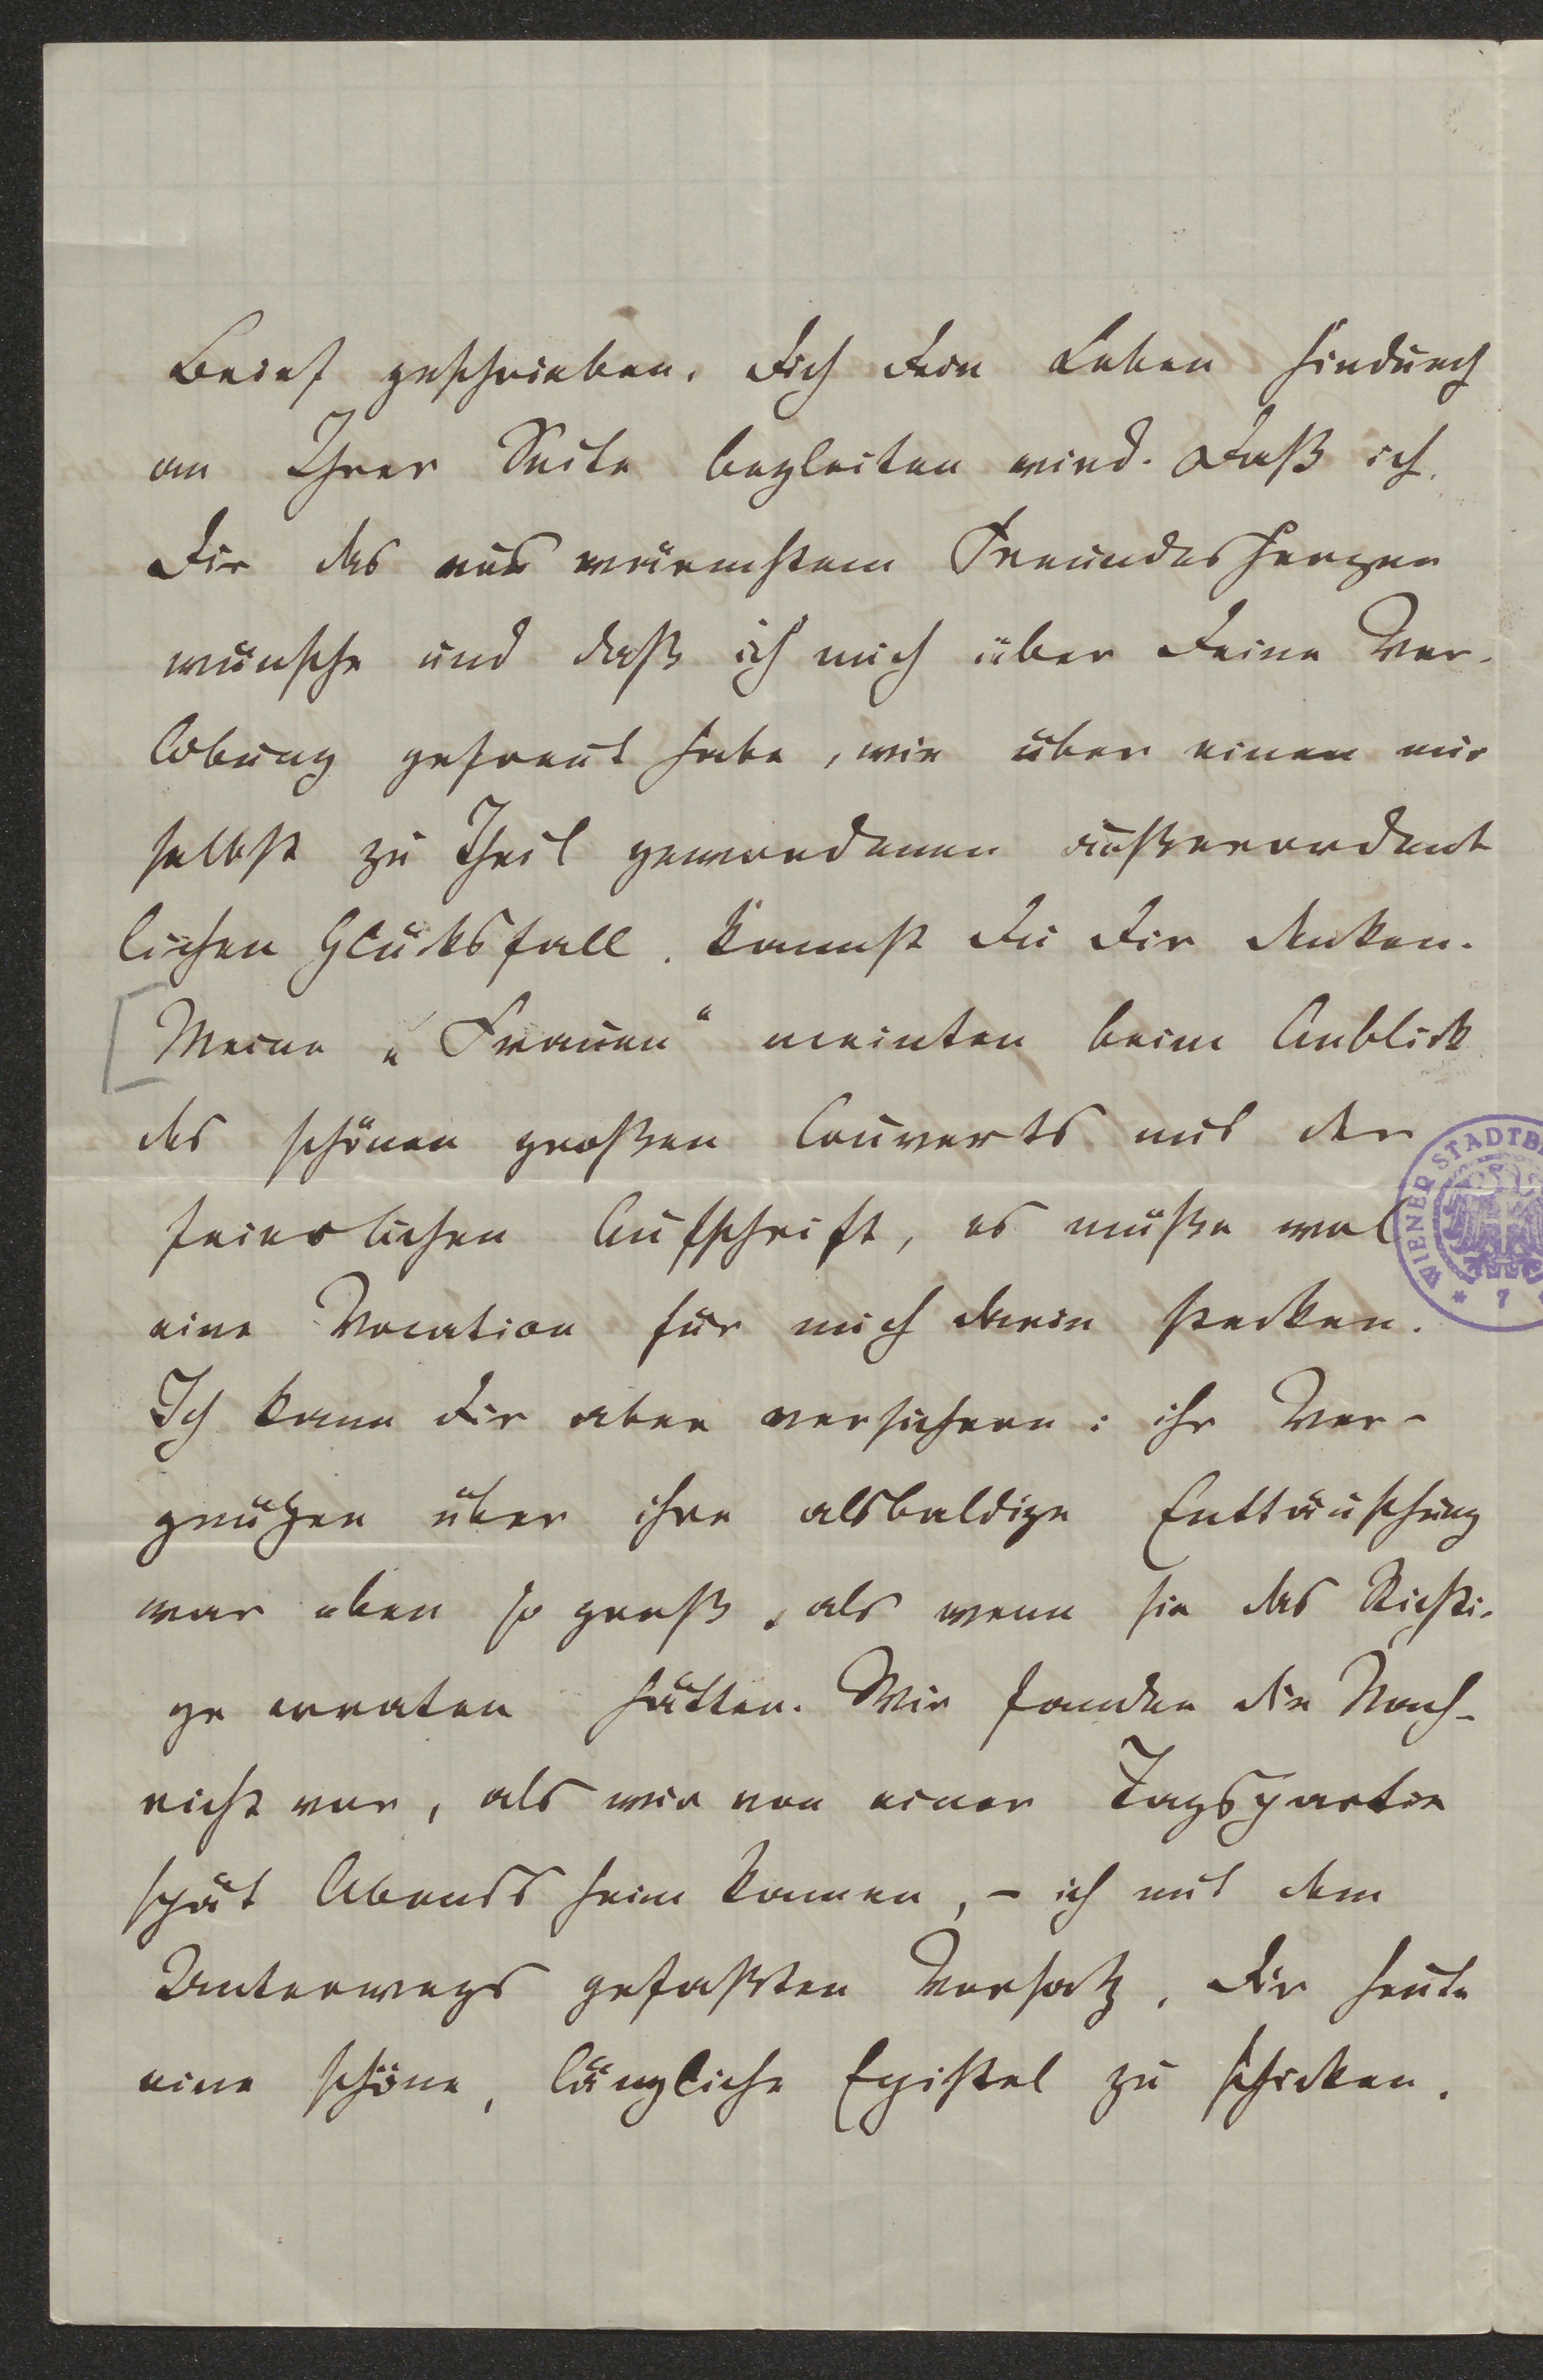 Brief geschrieben, Dich Dein Leben hindurch
an Ihrer Seite begleiten wird. Daß ich
Dir das aus wärmstem Freundesherzen
wünsche und daß ich mich über Deine Ver-
lobung gefreut habe, wie über einen mir
selbst zu Theil gewordenen außerordent
lichen Glücksfall, kannst Du Dir denken.
[Meine „Frauen“ meinten beim Anblick
des schönen großen Couverts mit der
feierlichen Aufschrift, es müße wol
eine Vocation für mich darin stecken.
Ich kann Dir aber versichern: ihr Ver-
gnügen über ihre alsbaldige Enttäuschung
war eben so groß, als wenn sie das Richti-
ge erraten hätten. Wir fanden die Nach-
richt vor, als wir von einer Tagspartie
spät Abends heim kamen, – ich mit dem
Unterwegs gefaßten Vorsatz, Dir heute
eine schöne, längliche Epistel zu schicken.
WIENER STADTB
* 7